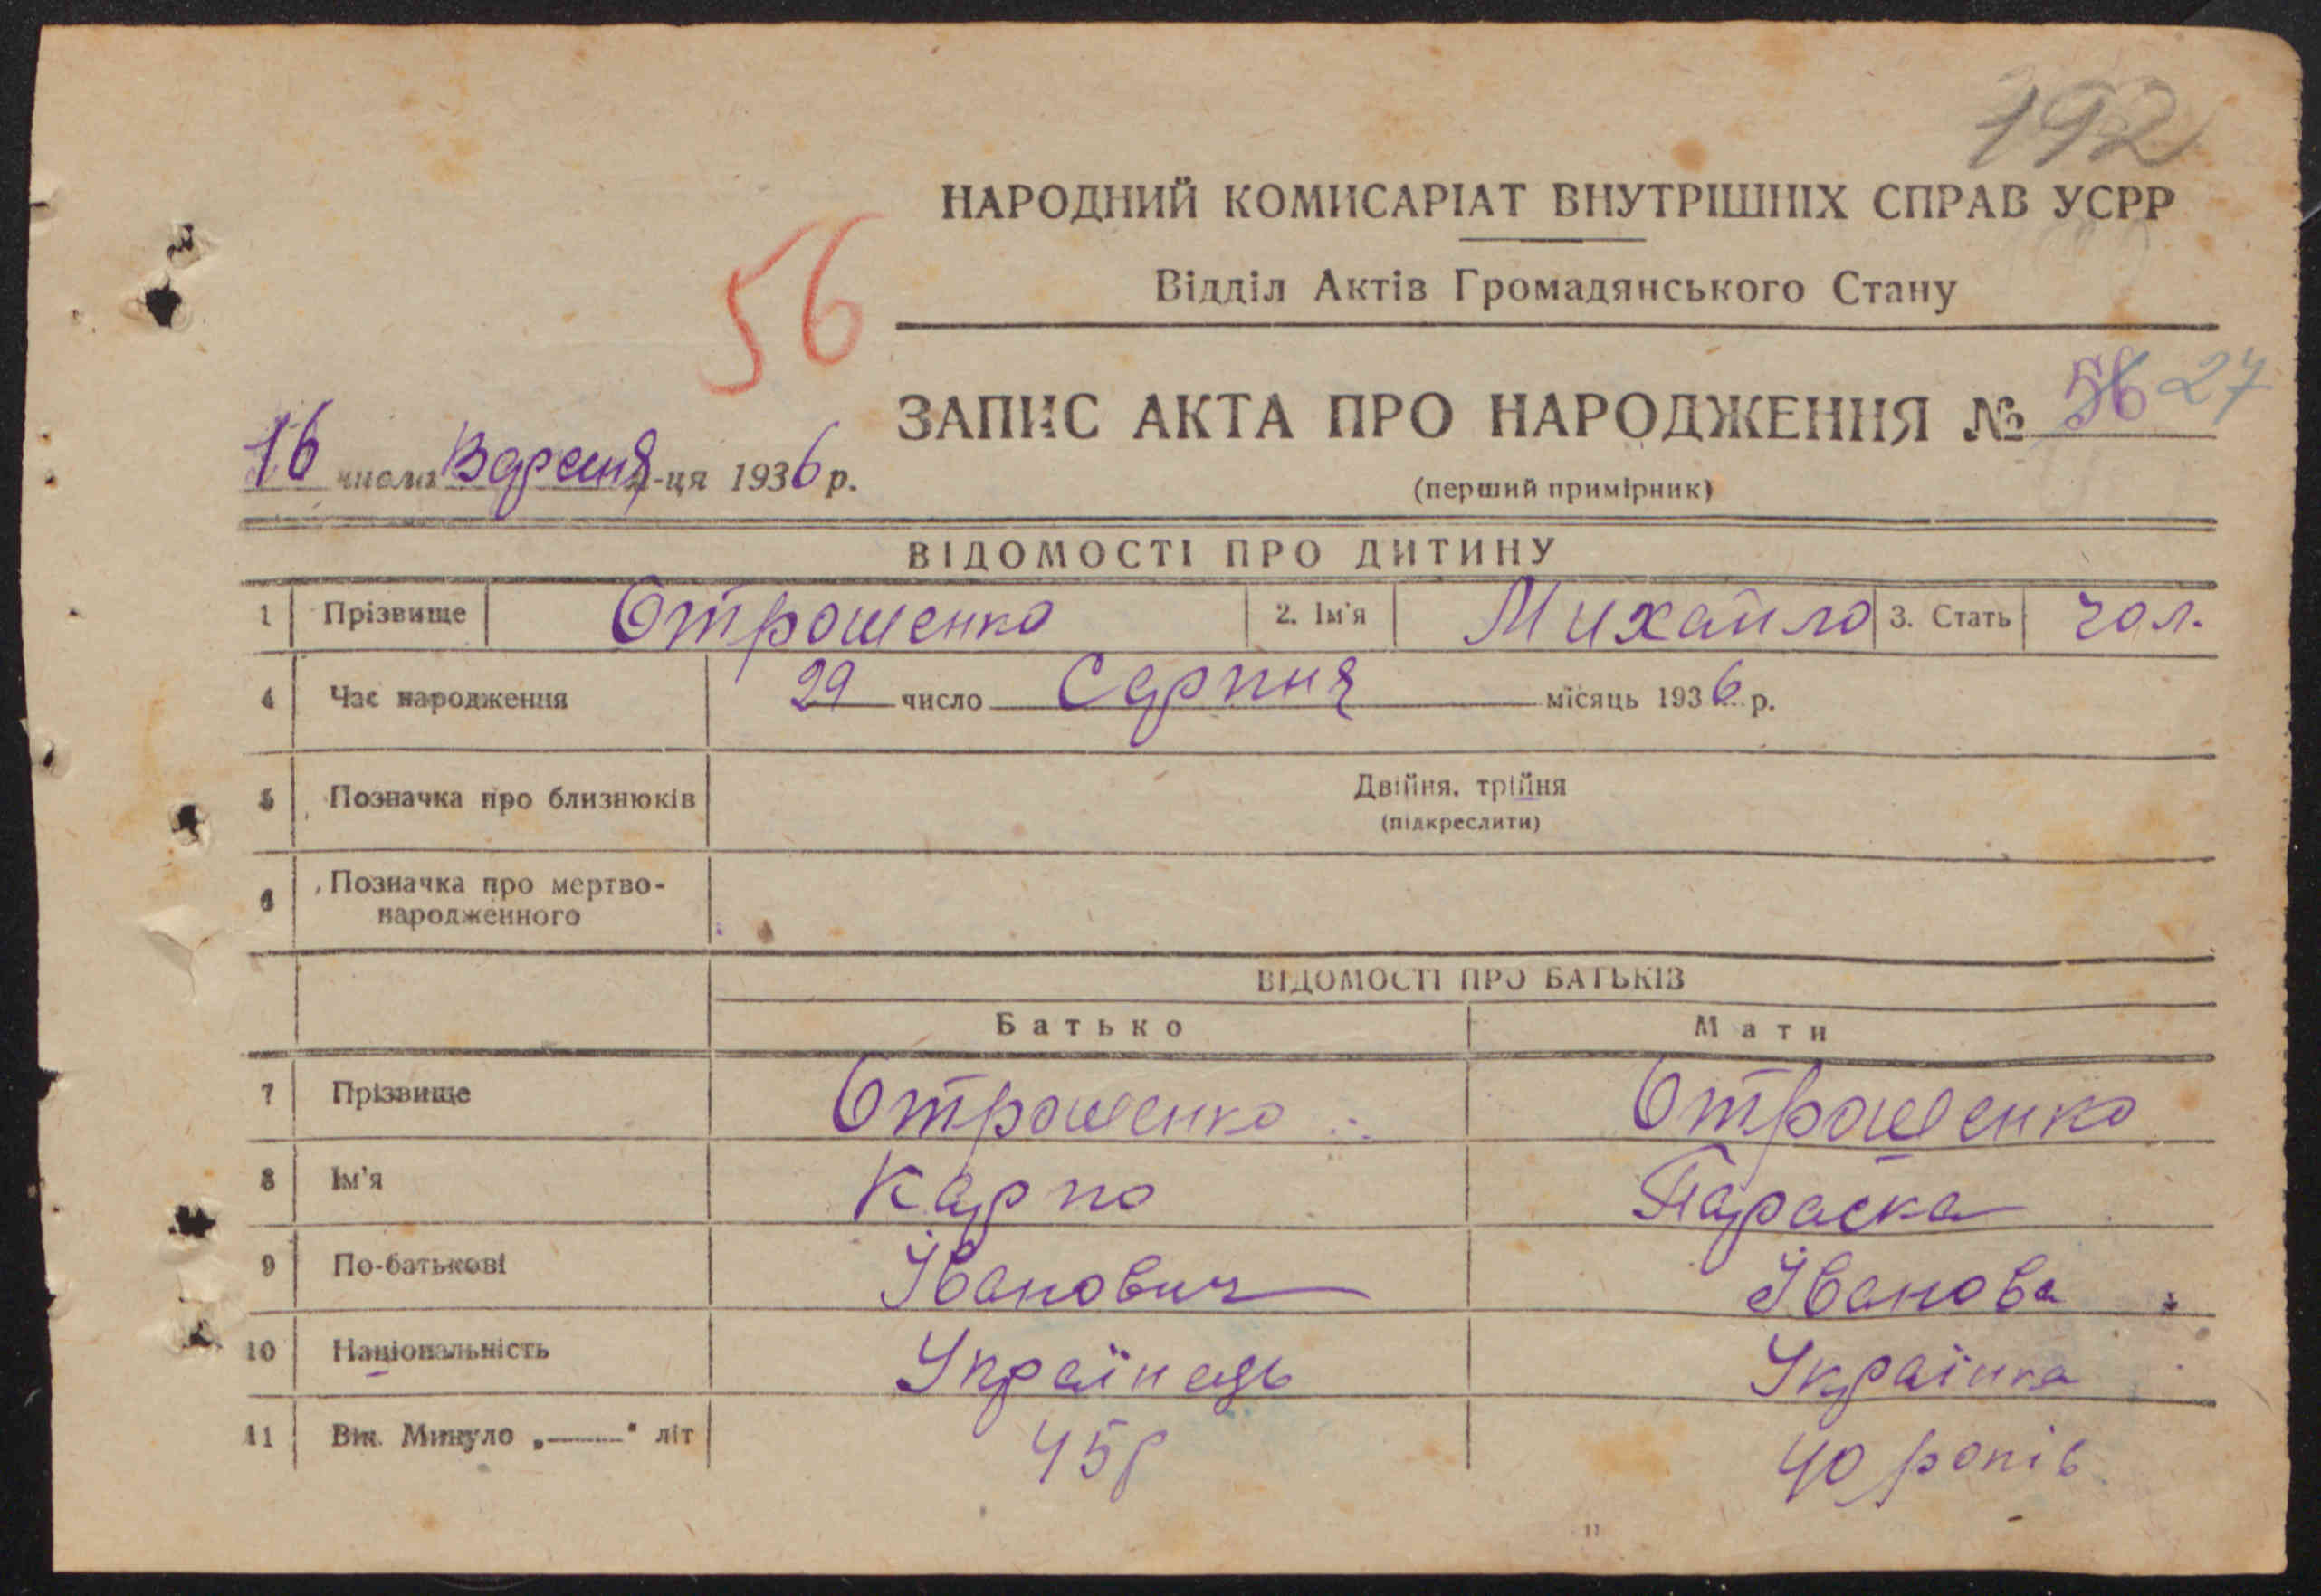 192
НАРОДНИЙ КОМИСАРІАТ ВНУТРІШНІХ СПРАВ УСРР
56
Відділ Актів Громадянського Стану
ЗАПИС АКТА ПРО НАРОДЖЕННЯ № 56 27
16 числа Вересня м-ця 1936 р.
(перший примірник)
ВІДОМОСТІ ПРО ДИТИНУ
1 Прізвище Отрошенко 2. Ім'я Михайло 3. Стать чол.
4 Час народження 29 число Серпня місяць 1936 р.
5 Позначка про близнюків Двійня, трійня
(підкреслити)
6 Позначка про мертво-
народженного
ВІДОМОСТІ ПРО БАТЬКІВ
Батько Мати
7 Прізвище Отрошенко Отрошенко
8 Ім'я Карпо Параска
9 По-батькові Іванович Іванова
10 Національність Українець Українка
11 Вік. Минуло „ “ літ 45р 40 років